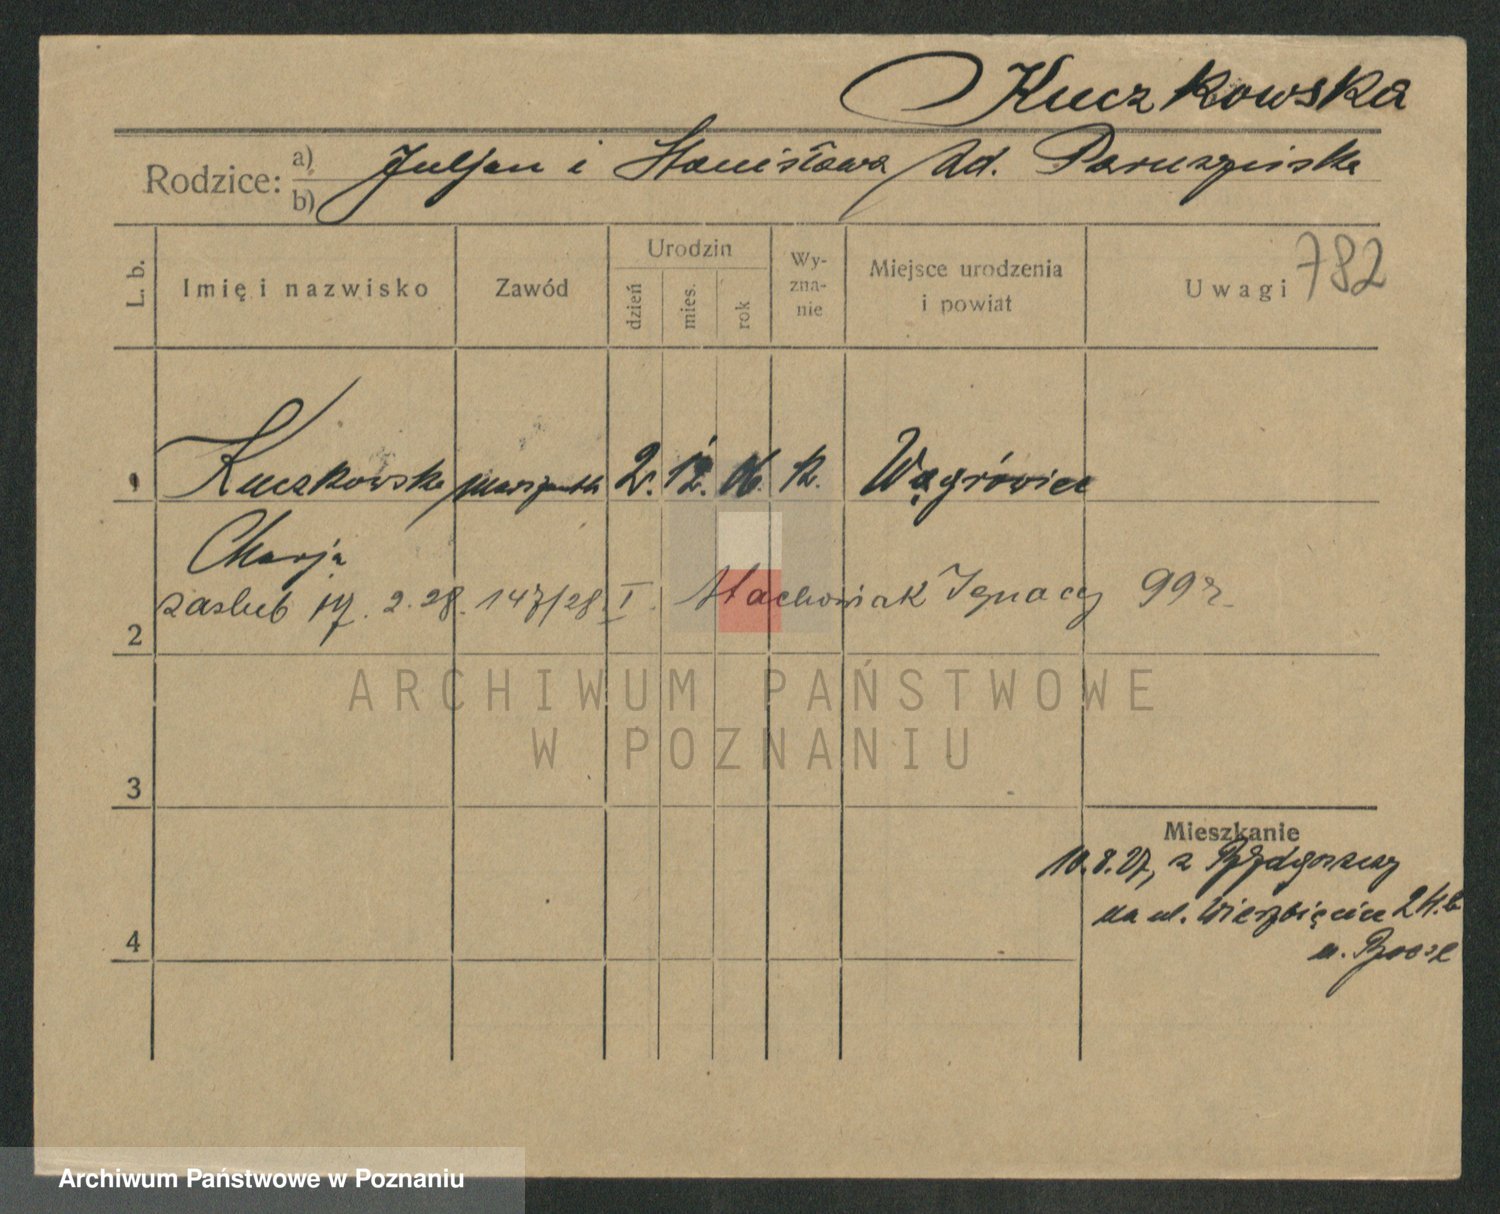 Kuczkowska
Rodzice: a) b) Juljan i Stanisława zd. Paruszyńska
L. b. Imię i nazwisko Zawód Urodzin dzień mies. rok Wyznanie Miejsce urodzenia i powiat Uwagi 782
1 Kuczkowska 2. 12. 06. k. Wągrówiec
Marja
zaślub 17. 2. 28. 147/28 I. Stachowiak Ignacy 99 r.
2
ARCHIWUM PAŃSTWOWE
W POZNANIU
3
Mieszkanie
10.8.27, z Bydgoszczy
na ul. Wierzbięcice
4
Archiwum Państwowe w Poznaniu